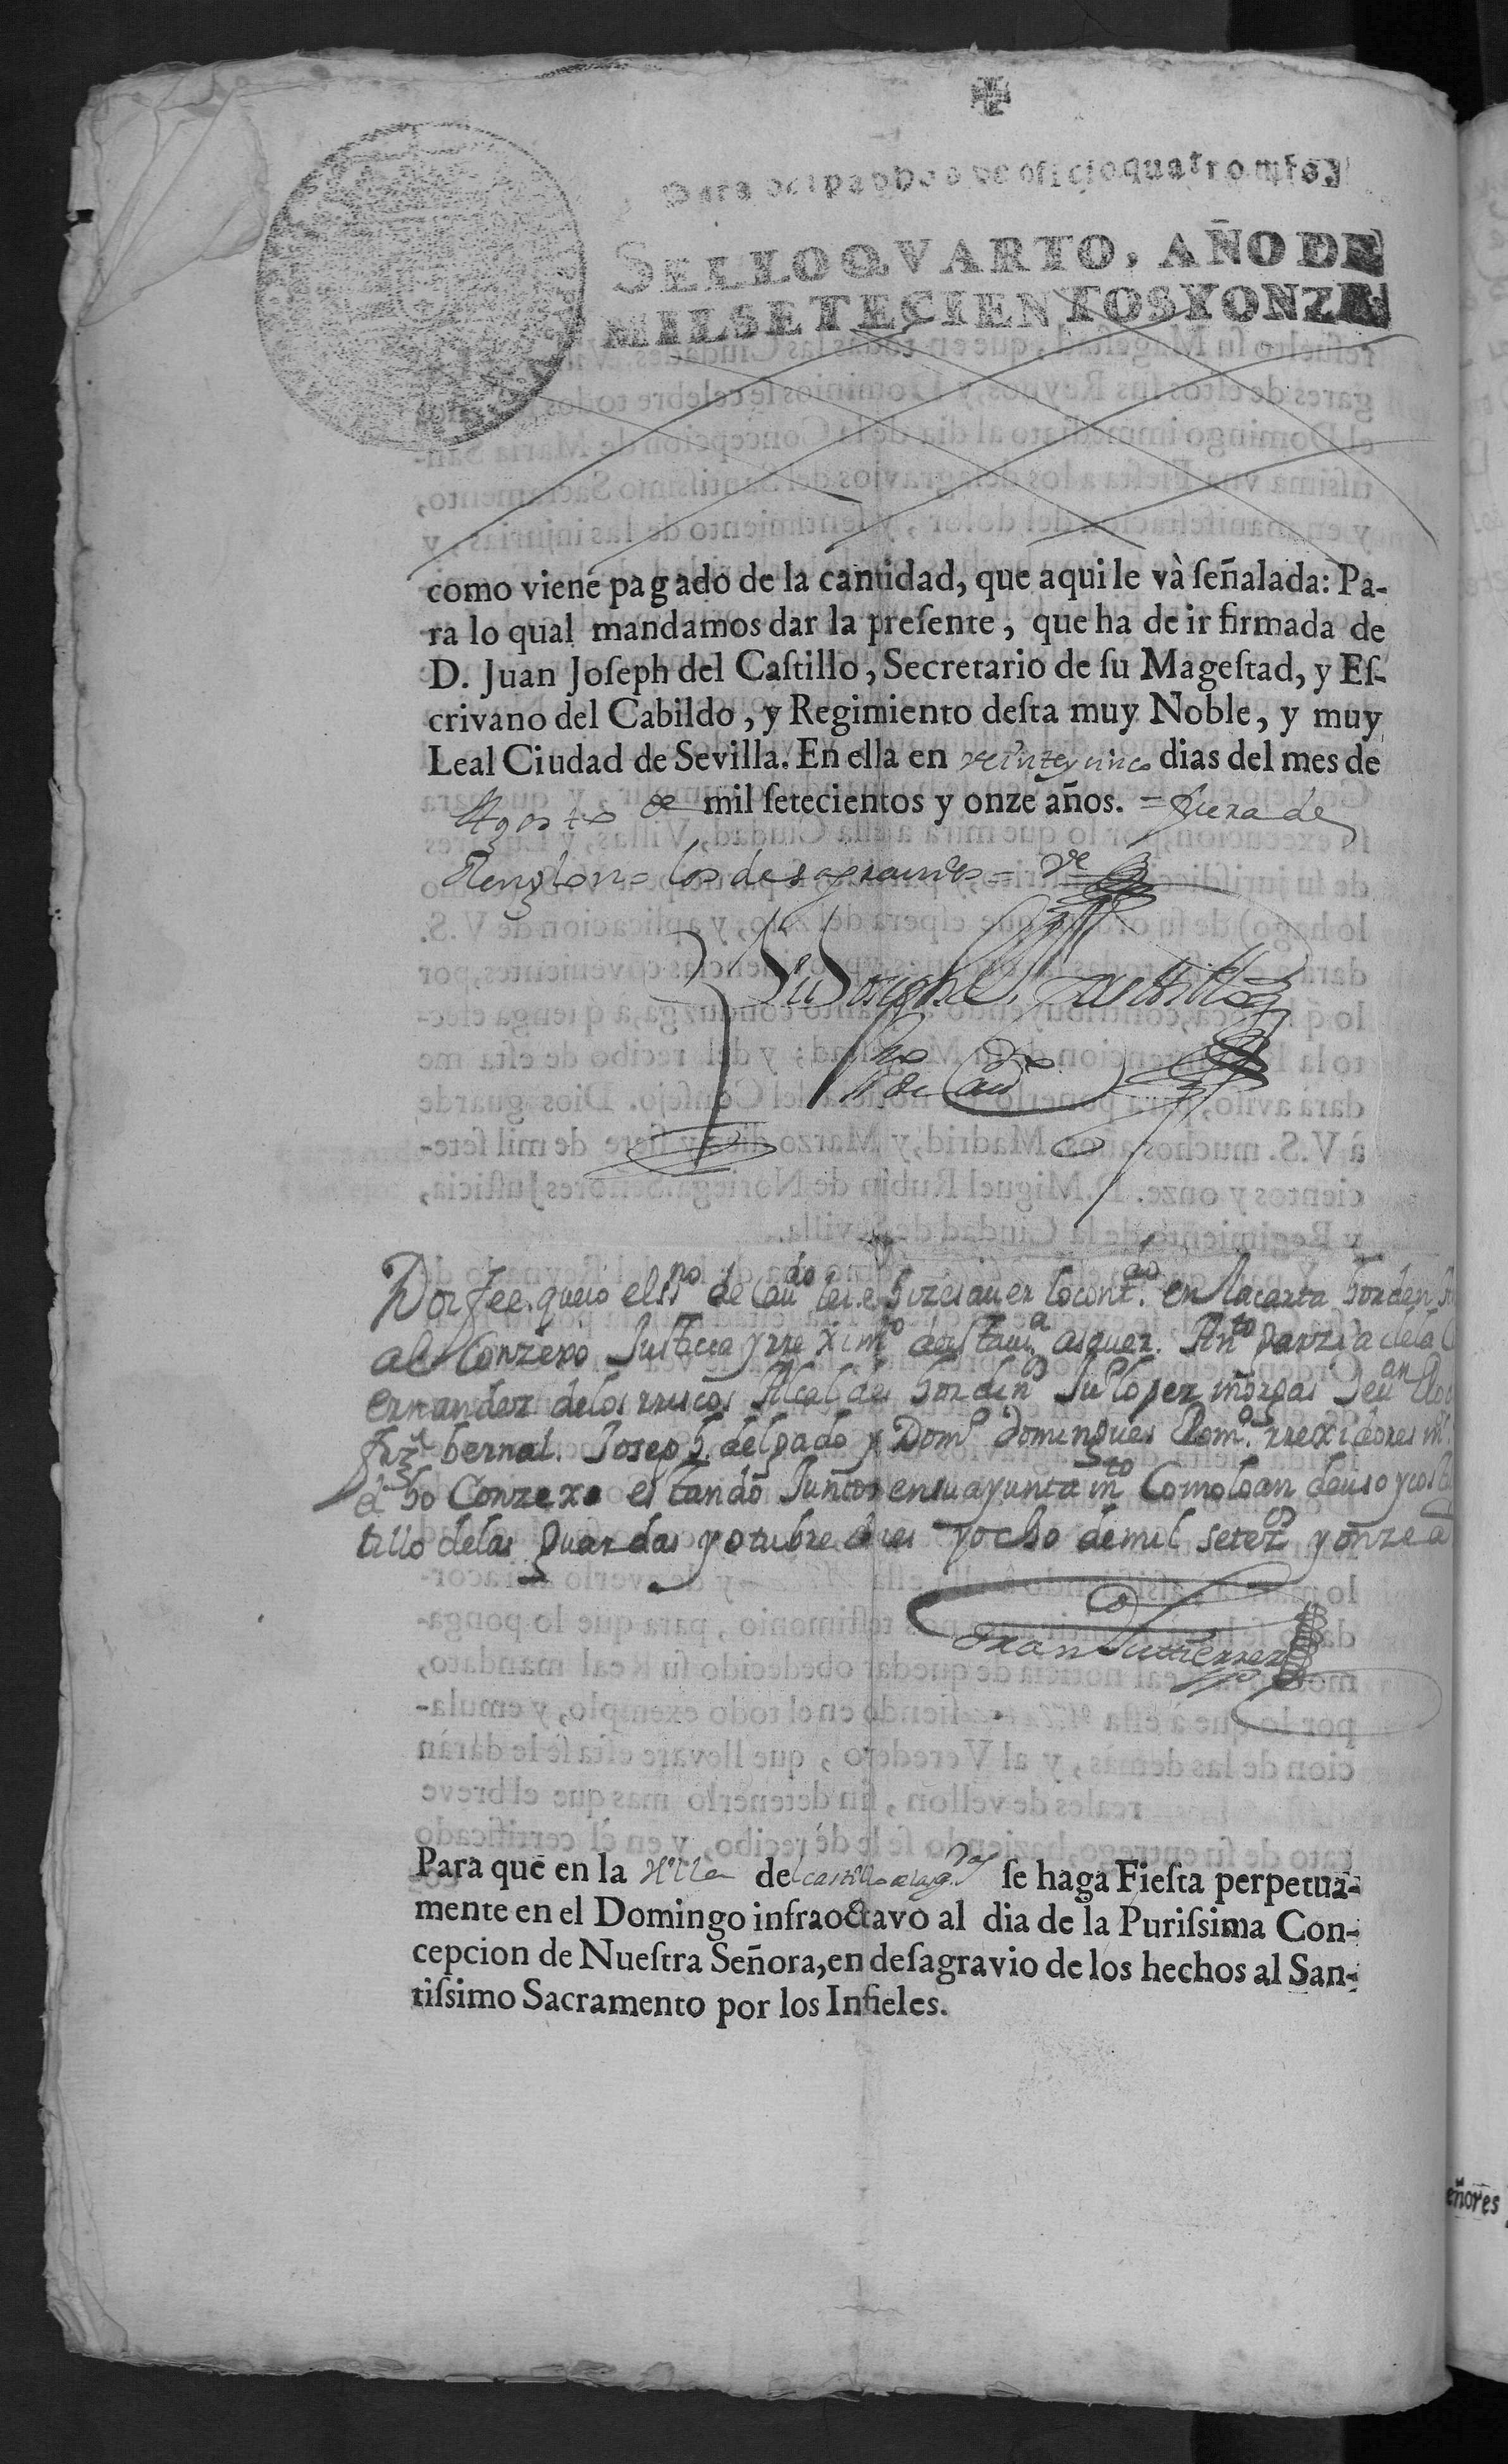 Para despachos de oficio quatro mrs.
SELLO QVARTO, AÑO DE
MIL SETECIENTOS Y ONZE.
como viene pagado de la cantidad, que aqui le và ſeñalada: Pa-
ra lo qual mandamos dar la preſente, que ha de ir firmada de
D. Juan Joſeph del Caſtillo, Secretario de ſu Mageſtad, y Eſ-
crivano del Cabildo, y Regimiento deſta muy Noble, y muy
Leal Ciudad de Sevilla. En ella en veinte y cinco dias del mes de
Agosto de mil ſetecientos y onze años. = fuera de
Renglon = los desagravios = Ve
Ju Joseph del Castillo
Doi fee. que io el ssno de Caudo lei e hize sauer lo contdo. en la carta horden
al Conzexo Justicia y rreximto desta uia a sauer. Anto Garzia de la
ernandez de los rriscos Alcaldes hordinos Ju lopez
frz bernal. Joseph delgado y Domo domingues Romo. rrexidores
d ho Conzexo estando Juntos en su ayuntamto Como lo an de uso y cos
tillo de las Guardas y otubre dies y ocho de mil setezos y onze a
Fran Gutierrez
Para que en la Villa del castillo de las gdas ſe haga Fieſta perpetua-
mente en el Domingo infraoctavo al dia de la Puriſsima Con-
cepcion de Nueſtra Señora, en deſagravio de los hechos al San-
tiſsimo Sacramento por los Infieles.
eñores